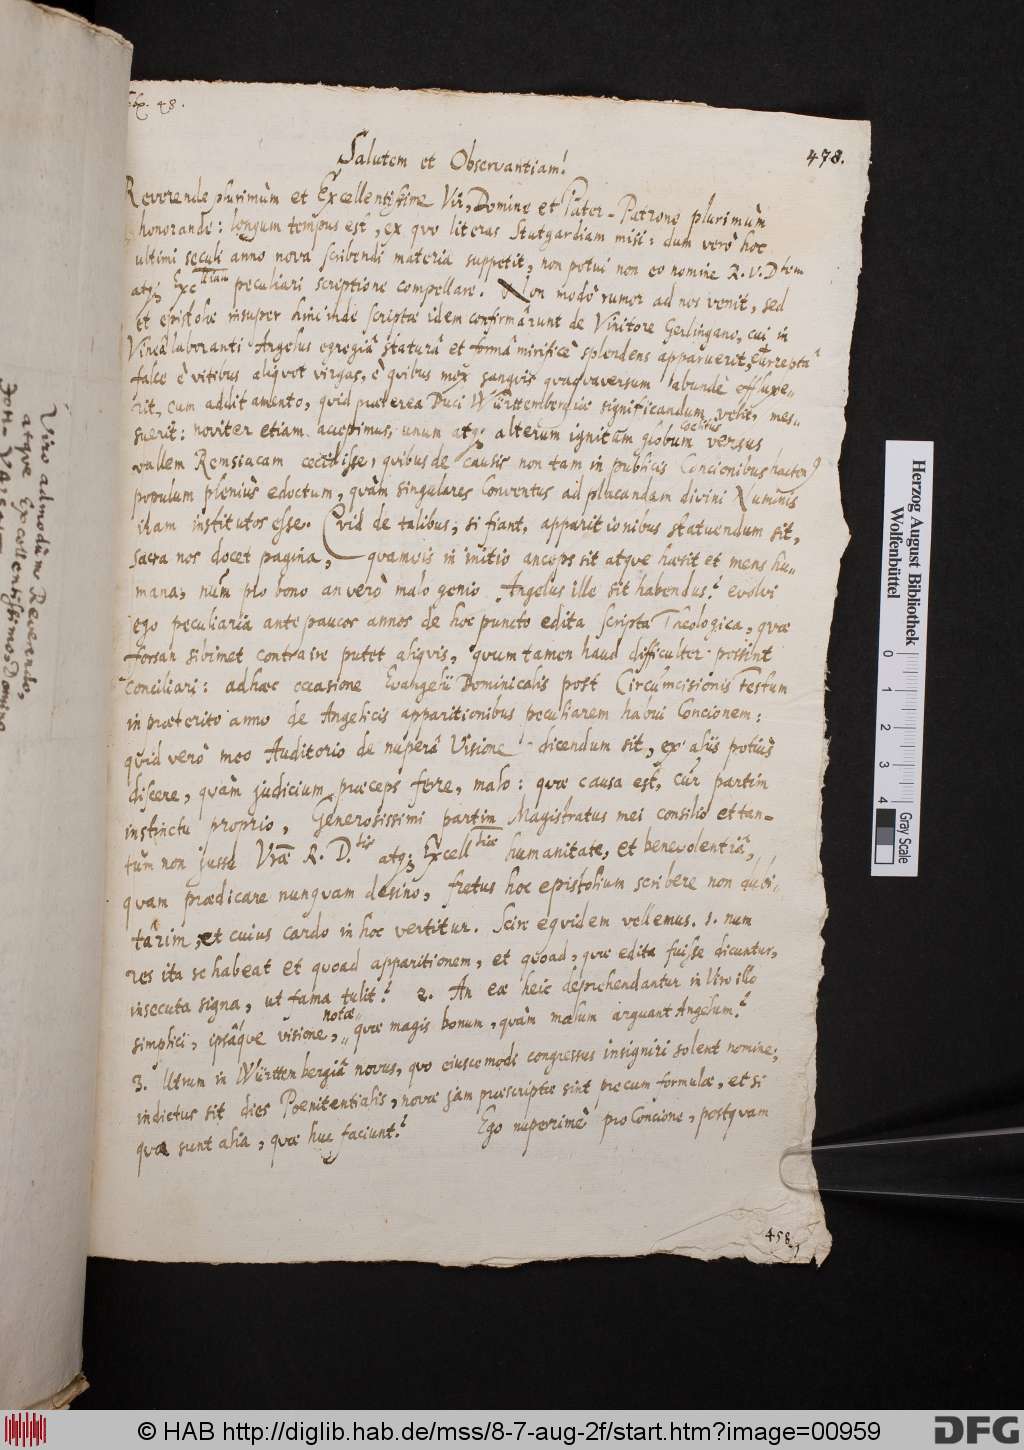 478.
Salutem et Observantiam!
Reverende plurimùm et Excellentissime Vir, Domine et Pater-Patrone plurimùm
honorande: longum tempus est, ex quo literas Stutgardiam misi: dum verò hoc
ultimi seculi anno nova scribendi materia suppetit, non potui non eo nomine R. V. D.
atq; Exc peculiari scriptione compellare. Non modò rumor ad nos venit, sed
et epistolæ insuper hinc inde scriptæ idem confirmârunt de Vinitore Gerlingano, cui in
Vineâ laboranti Angelus egregiâ staturâ et formâ mirificè splendens apparuerit, et arreptâ
falce è vitibus aliquot virgas, è quibus mox sanguis quaquaversum abundè effluxe-
rit, cum additamento, quid præterea Duci Württembergico significandum velit, mes-
suerit: noviter etiam accepimus, unum atq; alterum ignitum globum coelitus versus
vallem Remsiacam cecidisse, quibus de causis non tam in publicis Concionibus hacten9
populum pleniùs edoctum, quàm singulares Conventus ad placandam divini Numinis
iram institutos esse. Quid de talibus, si fiant, apparitionibus statuendum sit,
sacra nos docet pagina, quamvis in initio anceps sit atque hæsit et mens hu-
mana, nùm pro bono an verò malo genio Angelus ille sit habendus? evolvi
ego peculiaria ante paucos annos de hoc puncto edita scripta Theologica, quæ
forsan sibimet contraire putet aliquis, quum tamen haud difficulter possint
conciliari: adhæc occasione Evangelii Dominicalis post Circumcisionis Festum
in præterito anno de Angelicis apparitionibus peculiarem habui Concionem:
quid verò meo Auditorio de nuperâ Visione dicendum sit, ex aliis potiùs
discere, quàm judicium præceps ferre, malo: quæ causa est, cur partim
instinctu proprio, Generosissimi partim Magistratus mei consilio et tan-
tùm non jussu Vræ R. D.tis atq; Excell humanitate, et benevolentiâ,
quam prædicare nunquam desino, fretus hoc epistolium scribere non dubi-
târim, et cuius cardo in hoc vertitur. Scire equidem vellemus. 1. num
res ita se habeat et quoad apparitionem, et quoad, quæ edita fuisse dicuntur,
insecuta signa, ut fama tulit? 2. An eæ heic deprehendantur in Viro illo
simplici, ipsâque visione, notæ, quæ magis bonum, quàm malum arguant Angelum?
3. Utrum in Württembergiâ novus, quo eiuscemodi congressus insigniri solent nomine,
indictus sit dies Poenitentialis, novæ jam præscriptæ sint precum formulæ, et si
quæ sunt alia, quæ huc faciunt? Ego nuperrimè pro Concione, postquam
458
Viro admodùm Reverendo,
atque Excellentissimo Domino
Herzog August Bibliothek
Wolfenbüttel
0 1 2 3 4
Gray Scale
© HAB http://diglib.hab.de/mss/8-7-aug-2f/start.htm?image=00959
DFG